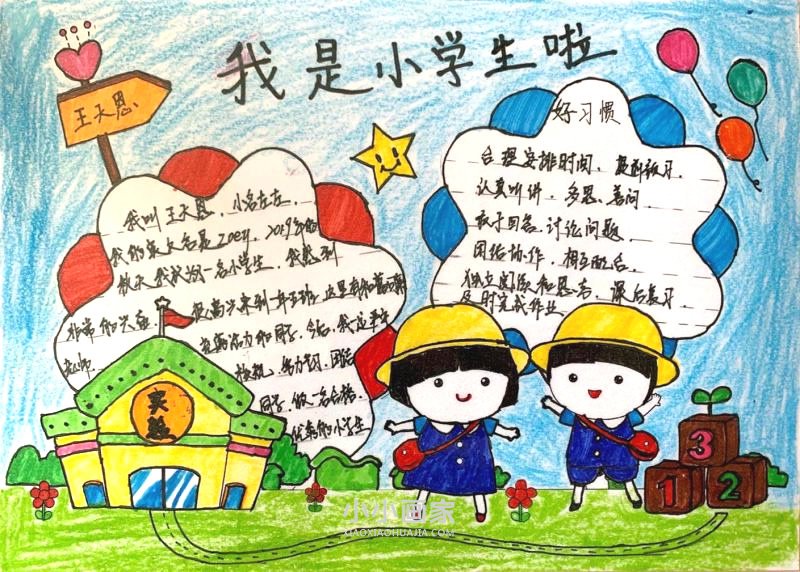 我是小学生啦
王天恩
我叫王天恩，小名左左，
我的英文名是Zoey，2019年的
秋天我成为一名小学生，我感到
非常的兴奋 很高兴来到一年五班，这里有和蔼
老师 有活力的同学，今后，我定
努力学习，团结
同学，做一名合格，
优秀的小学生
好习惯
合理安排时间，
认真听讲，多思、善问，
敢于回答、讨论问题，
团结协作，相互配合，
独立阅读和思考，课后复习，
及时完成作业
实验
3
1 2
小小画家
XIAOXIAOHUAJIA.COM